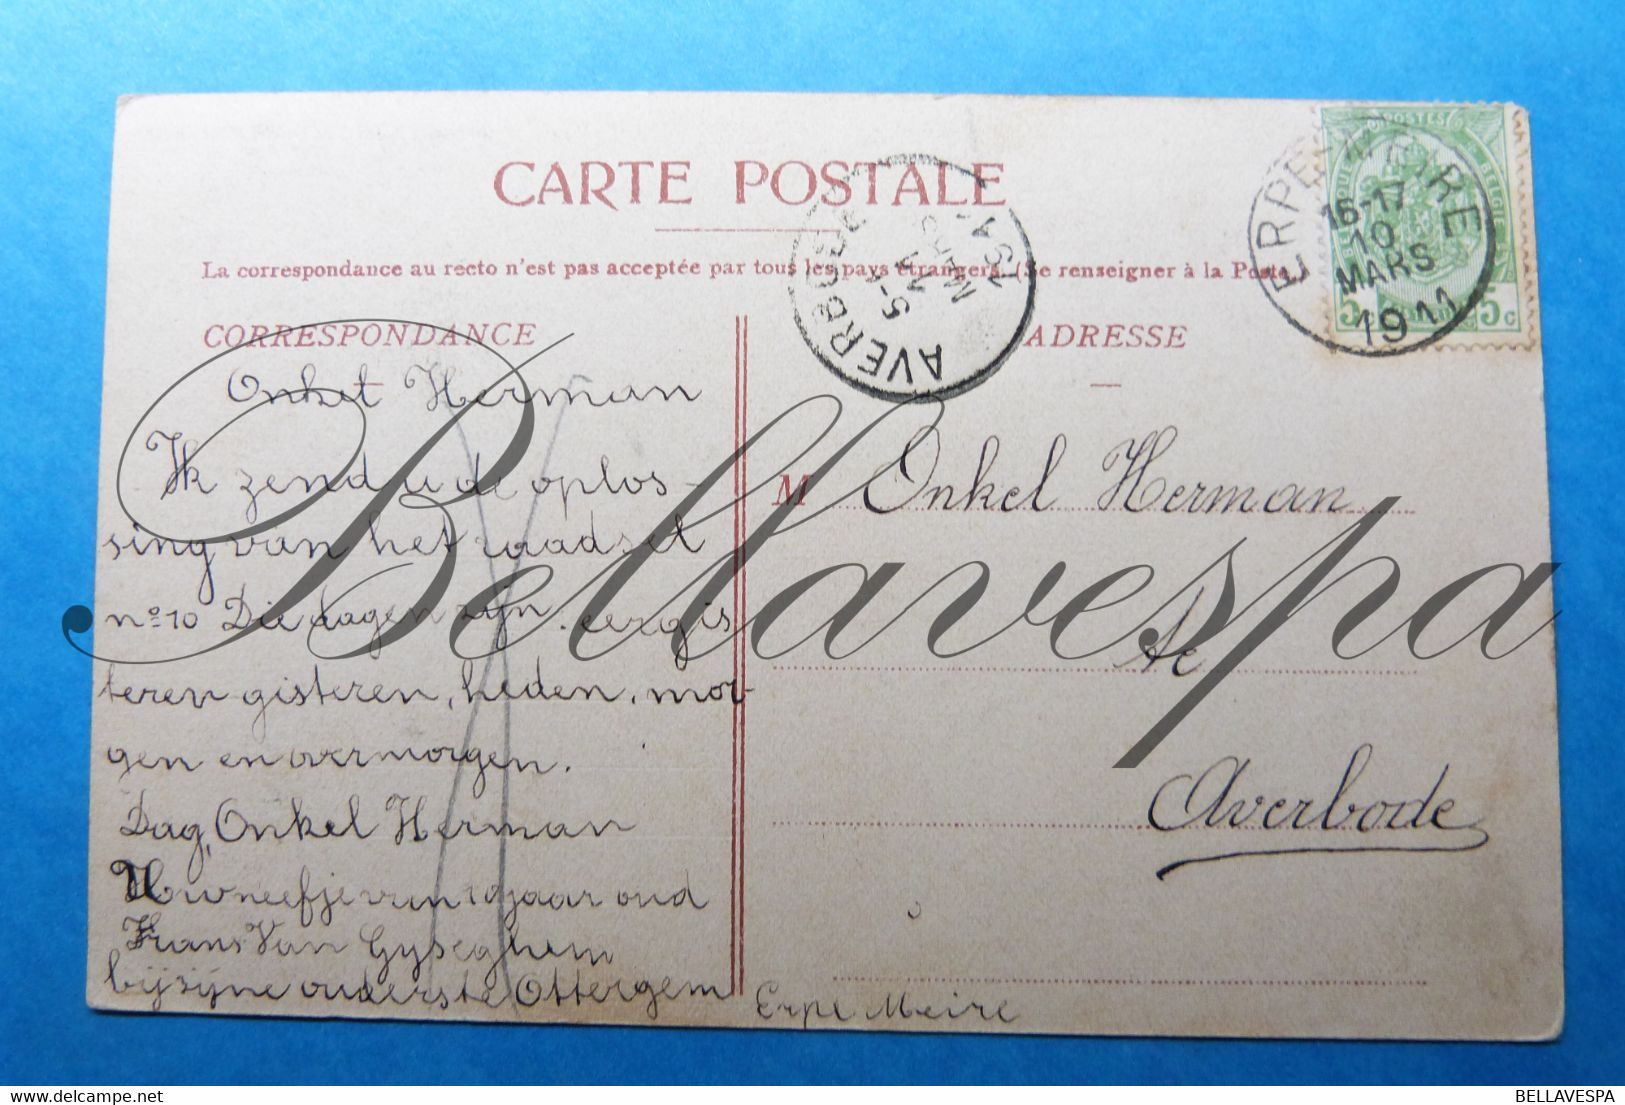 CARTE POSTALE
La correspondance au recto n'est pas acceptée par tous les pays étrangers. (Se renseigner à la Poste.)
CORRESPONDANCE
ADRESSE
Onkel Herman
Ik zend u de oplos-
sing van het raadsel
nº 10 Die dagen zyn: eergis
teren gisteren, heden, mor-
gen en overmorgen.
Dag, Onkel Herman
Uw neefje van 10 jaar oud
Frans Van Gyseghem
bij zijne ouders te Ottergem
Erpe Meire
M Onkel Herman
te
Averbode
ERPE-MEIRE
16-17
10
MARS
1911
AVERBODE
5-
11
MARS
POSTES
BELGIQUE
BELGIË
5c 5c
Bellavespa
BELLAVESPA